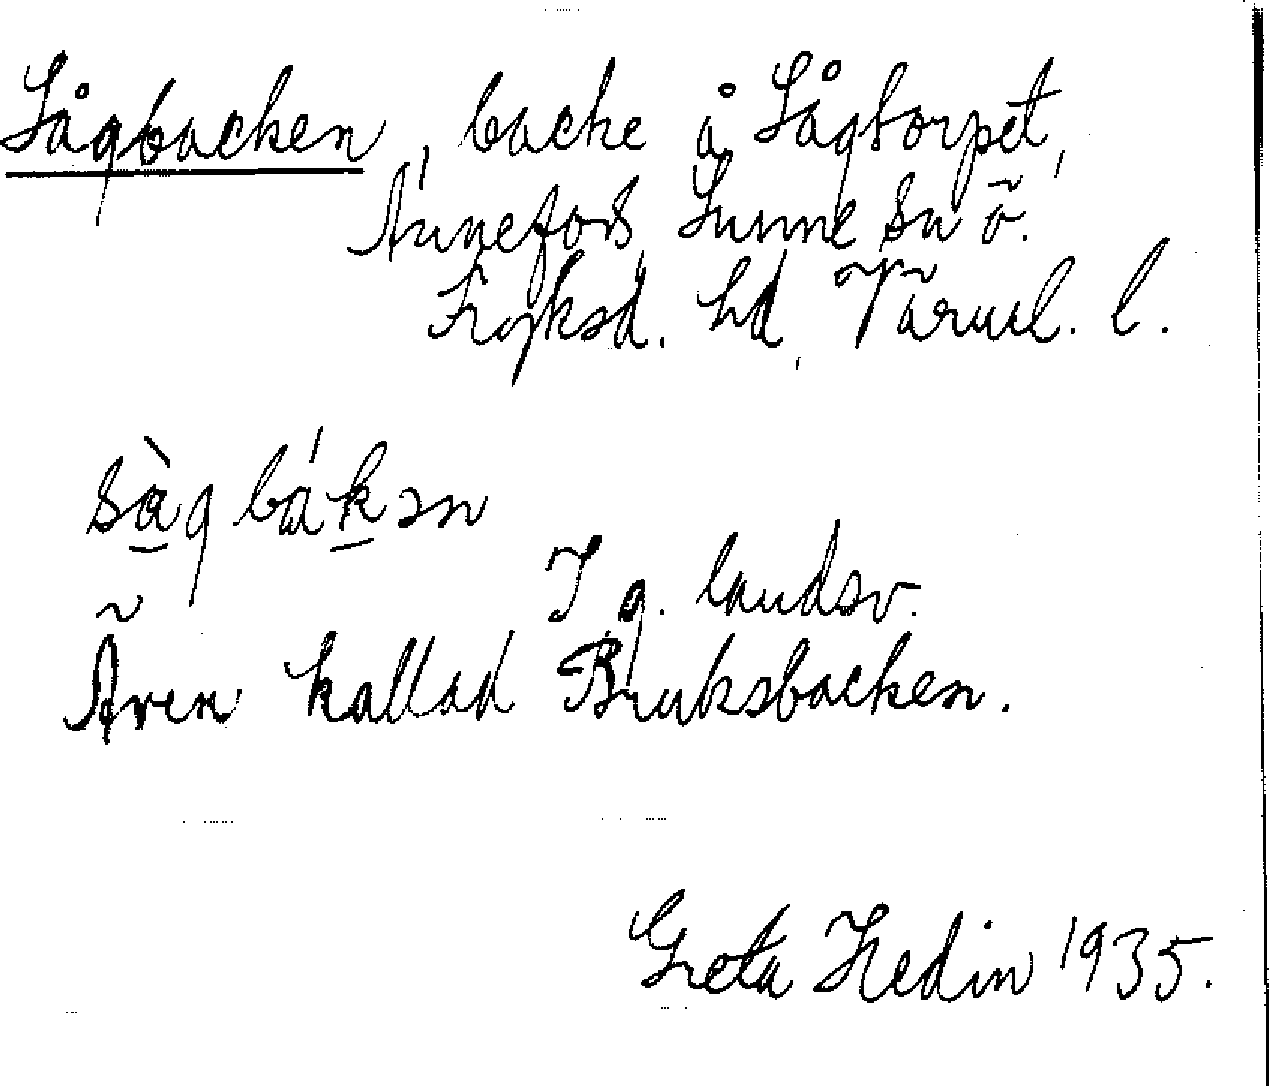 Sågbacken, backe å Sågtorpet,
Ånnefors, Sunne sn ö.
Fryksd. hd, Värml. l.
sàg bákən
I g. landsv.
Även kallad Bruksbacken.
Greta Hedin 1935.